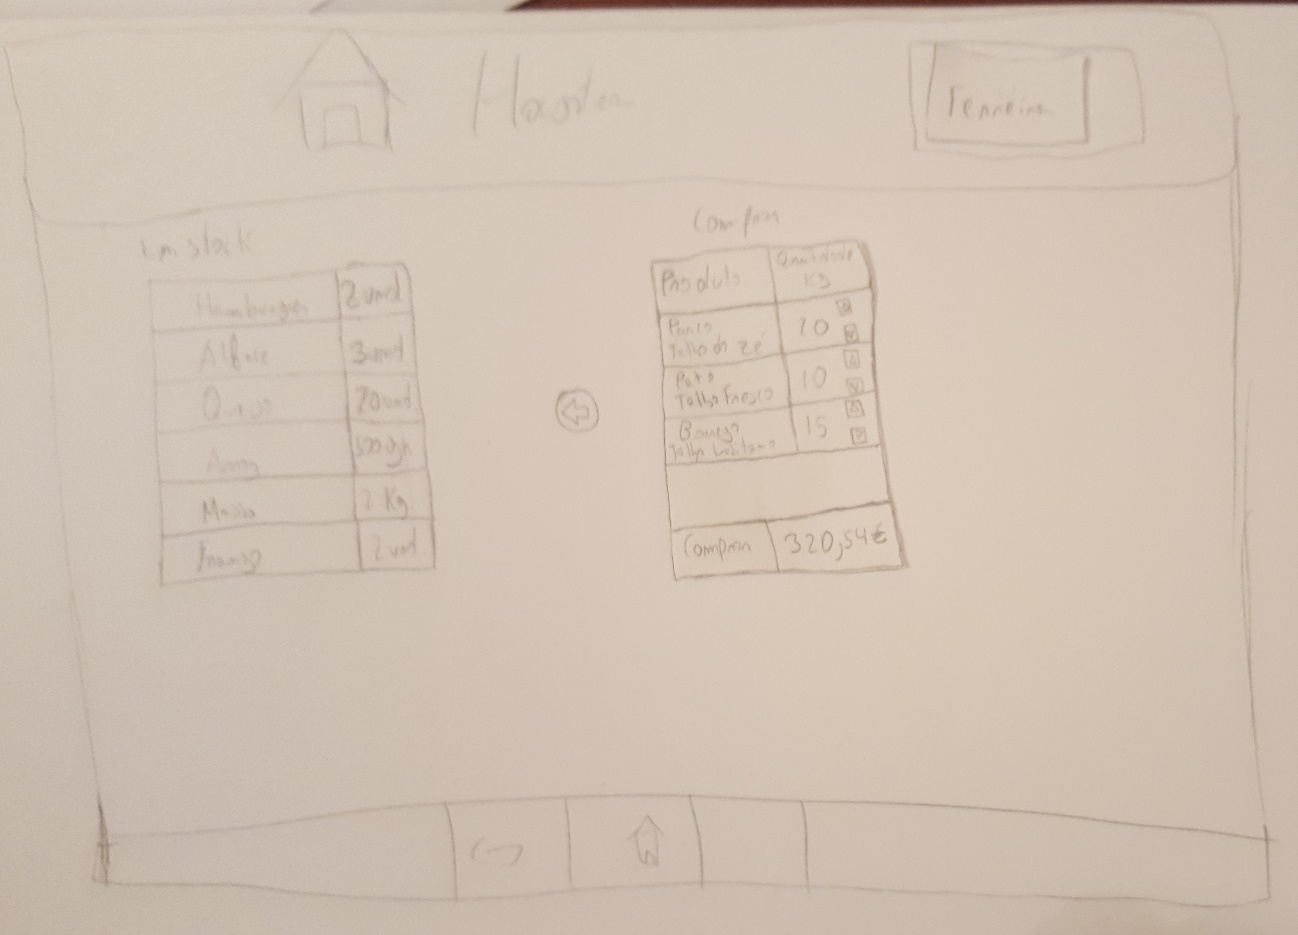 Ferreira
Em stock
Hamburger 2 und
Alface 3 und
20 und
Arroz 500 gr
Massa 2 Kg
Frango 2 und
Comprar
Produto Quantidade
Kg
Porco
Talho do Zé 20
Pato
Talho Fresco 10
Borrego
Talho Lusitano 15
Comprar 320,54€